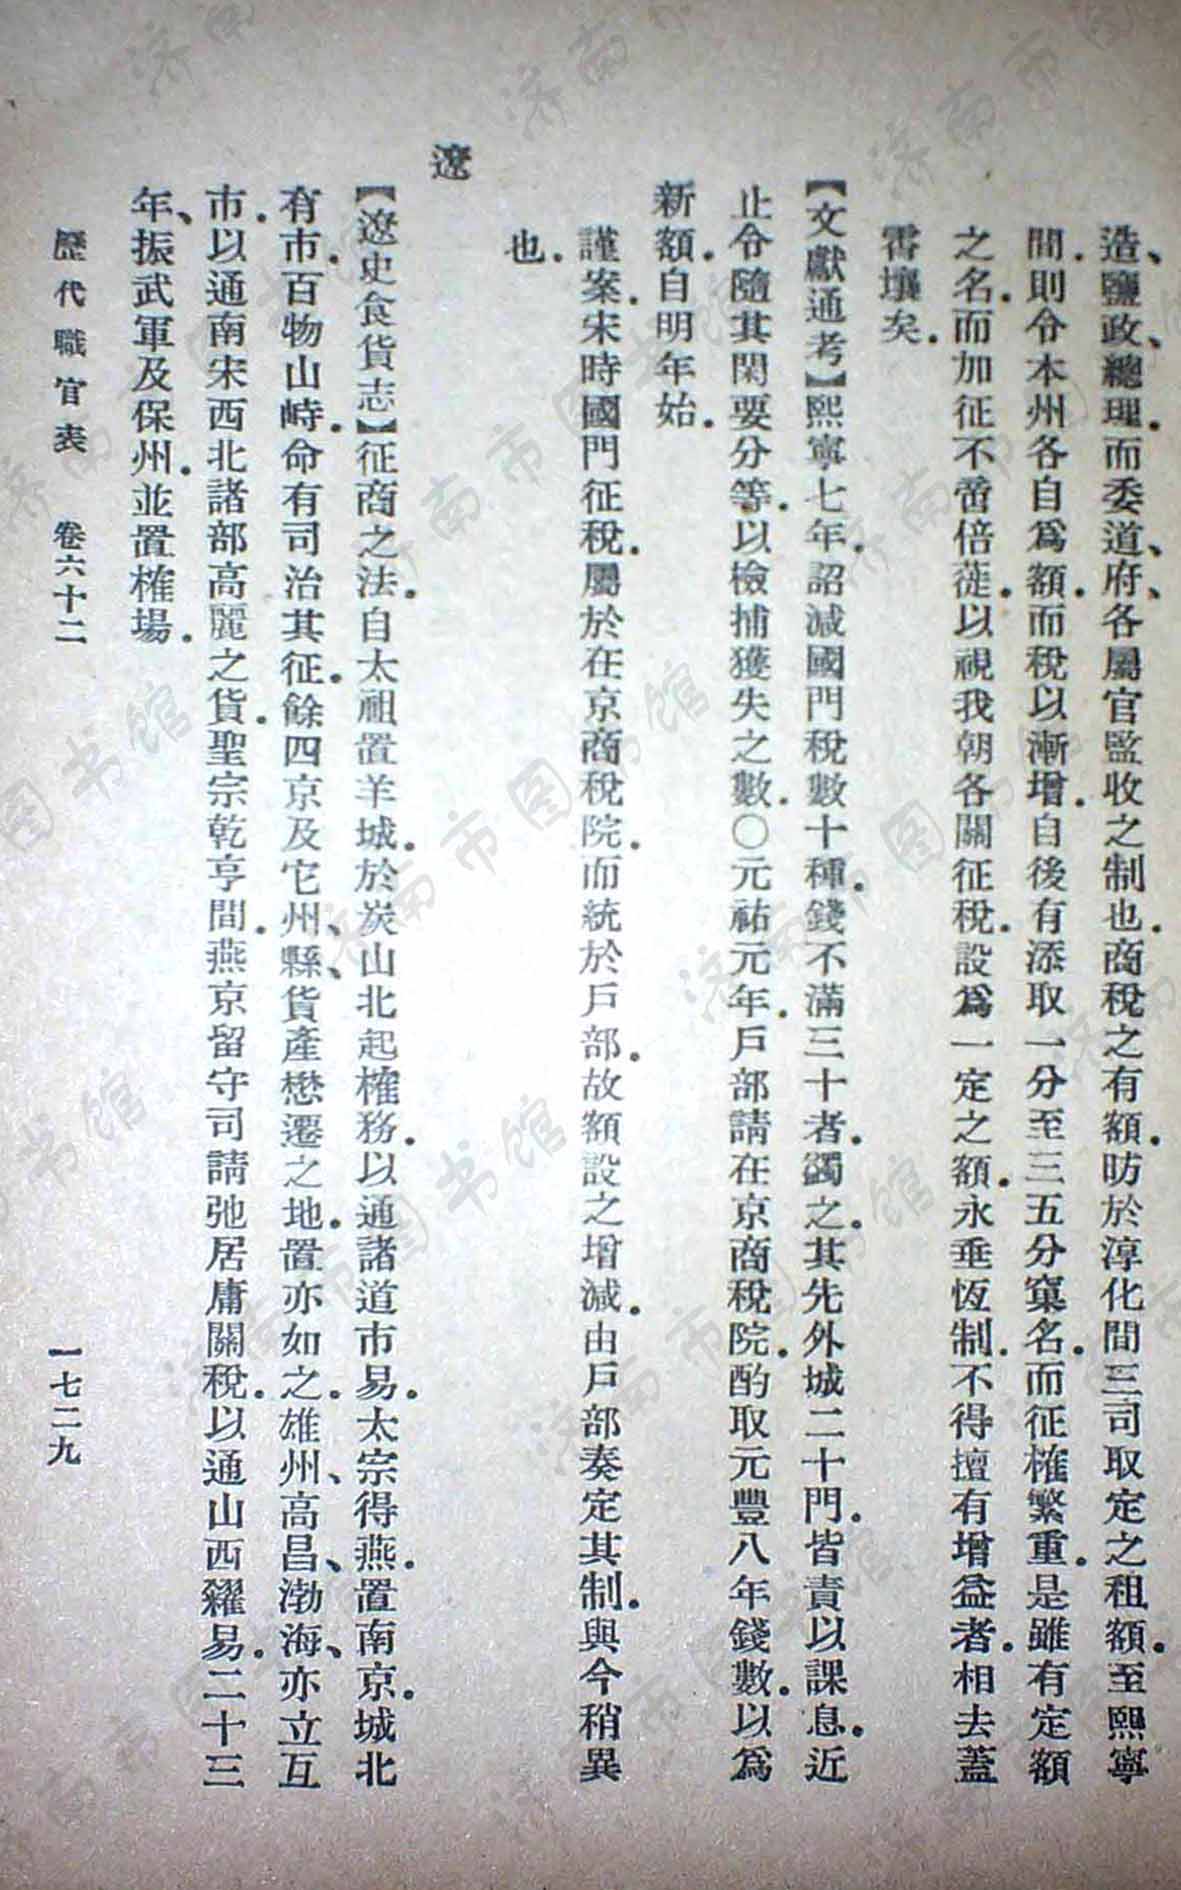 造、鹽政、總理．而委道、府、各屬官監收之制也．商稅之有額．昉於淳化間三司取定之租額．至熙寧
間．則令本州各自爲額．而稅以漸增．自後有添取一分至三五分窠名．而征榷繁重．是雖有定額
之名．而加征不啻倍蓰．以視我朝各關征稅．設爲一定之額．永垂恆制．不得擅有增益者．相去蓋
霄壤矣．
【文獻通考】熙寧七年．詔減國門稅數十種．錢不滿三十者．蠲之．其先外城二十門．皆責以課息．近
止令隨其閑要分等．以檢捕獲失之數．○元祐元年．戶部請在京商稅院．酌取元豐八年錢數．以爲
新額．自明年始．
謹案．宋時國門征稅．屬於在京商稅院．而統於戶部．故額設之增減．由戶部奏定其制．與今稍異
也．
遼
【遼史食貨志】征商之法．自太祖置羊城．於炭山北起榷務．以通諸道市易．太宗得燕．置南京．城北
有市．百物山峙．命有司治其征．餘四京及它州、縣、貨產懋遷之地．置亦如之．雄州、高昌、渤海、亦立互
市．以通南宋西北諸部高麗之貨．聖宗乾亨間．燕京留守司請弛居庸關稅．以通山西糴易．二十三
年、振武軍及保州．並置榷場．
歷代職官表 卷六十二 一七二九